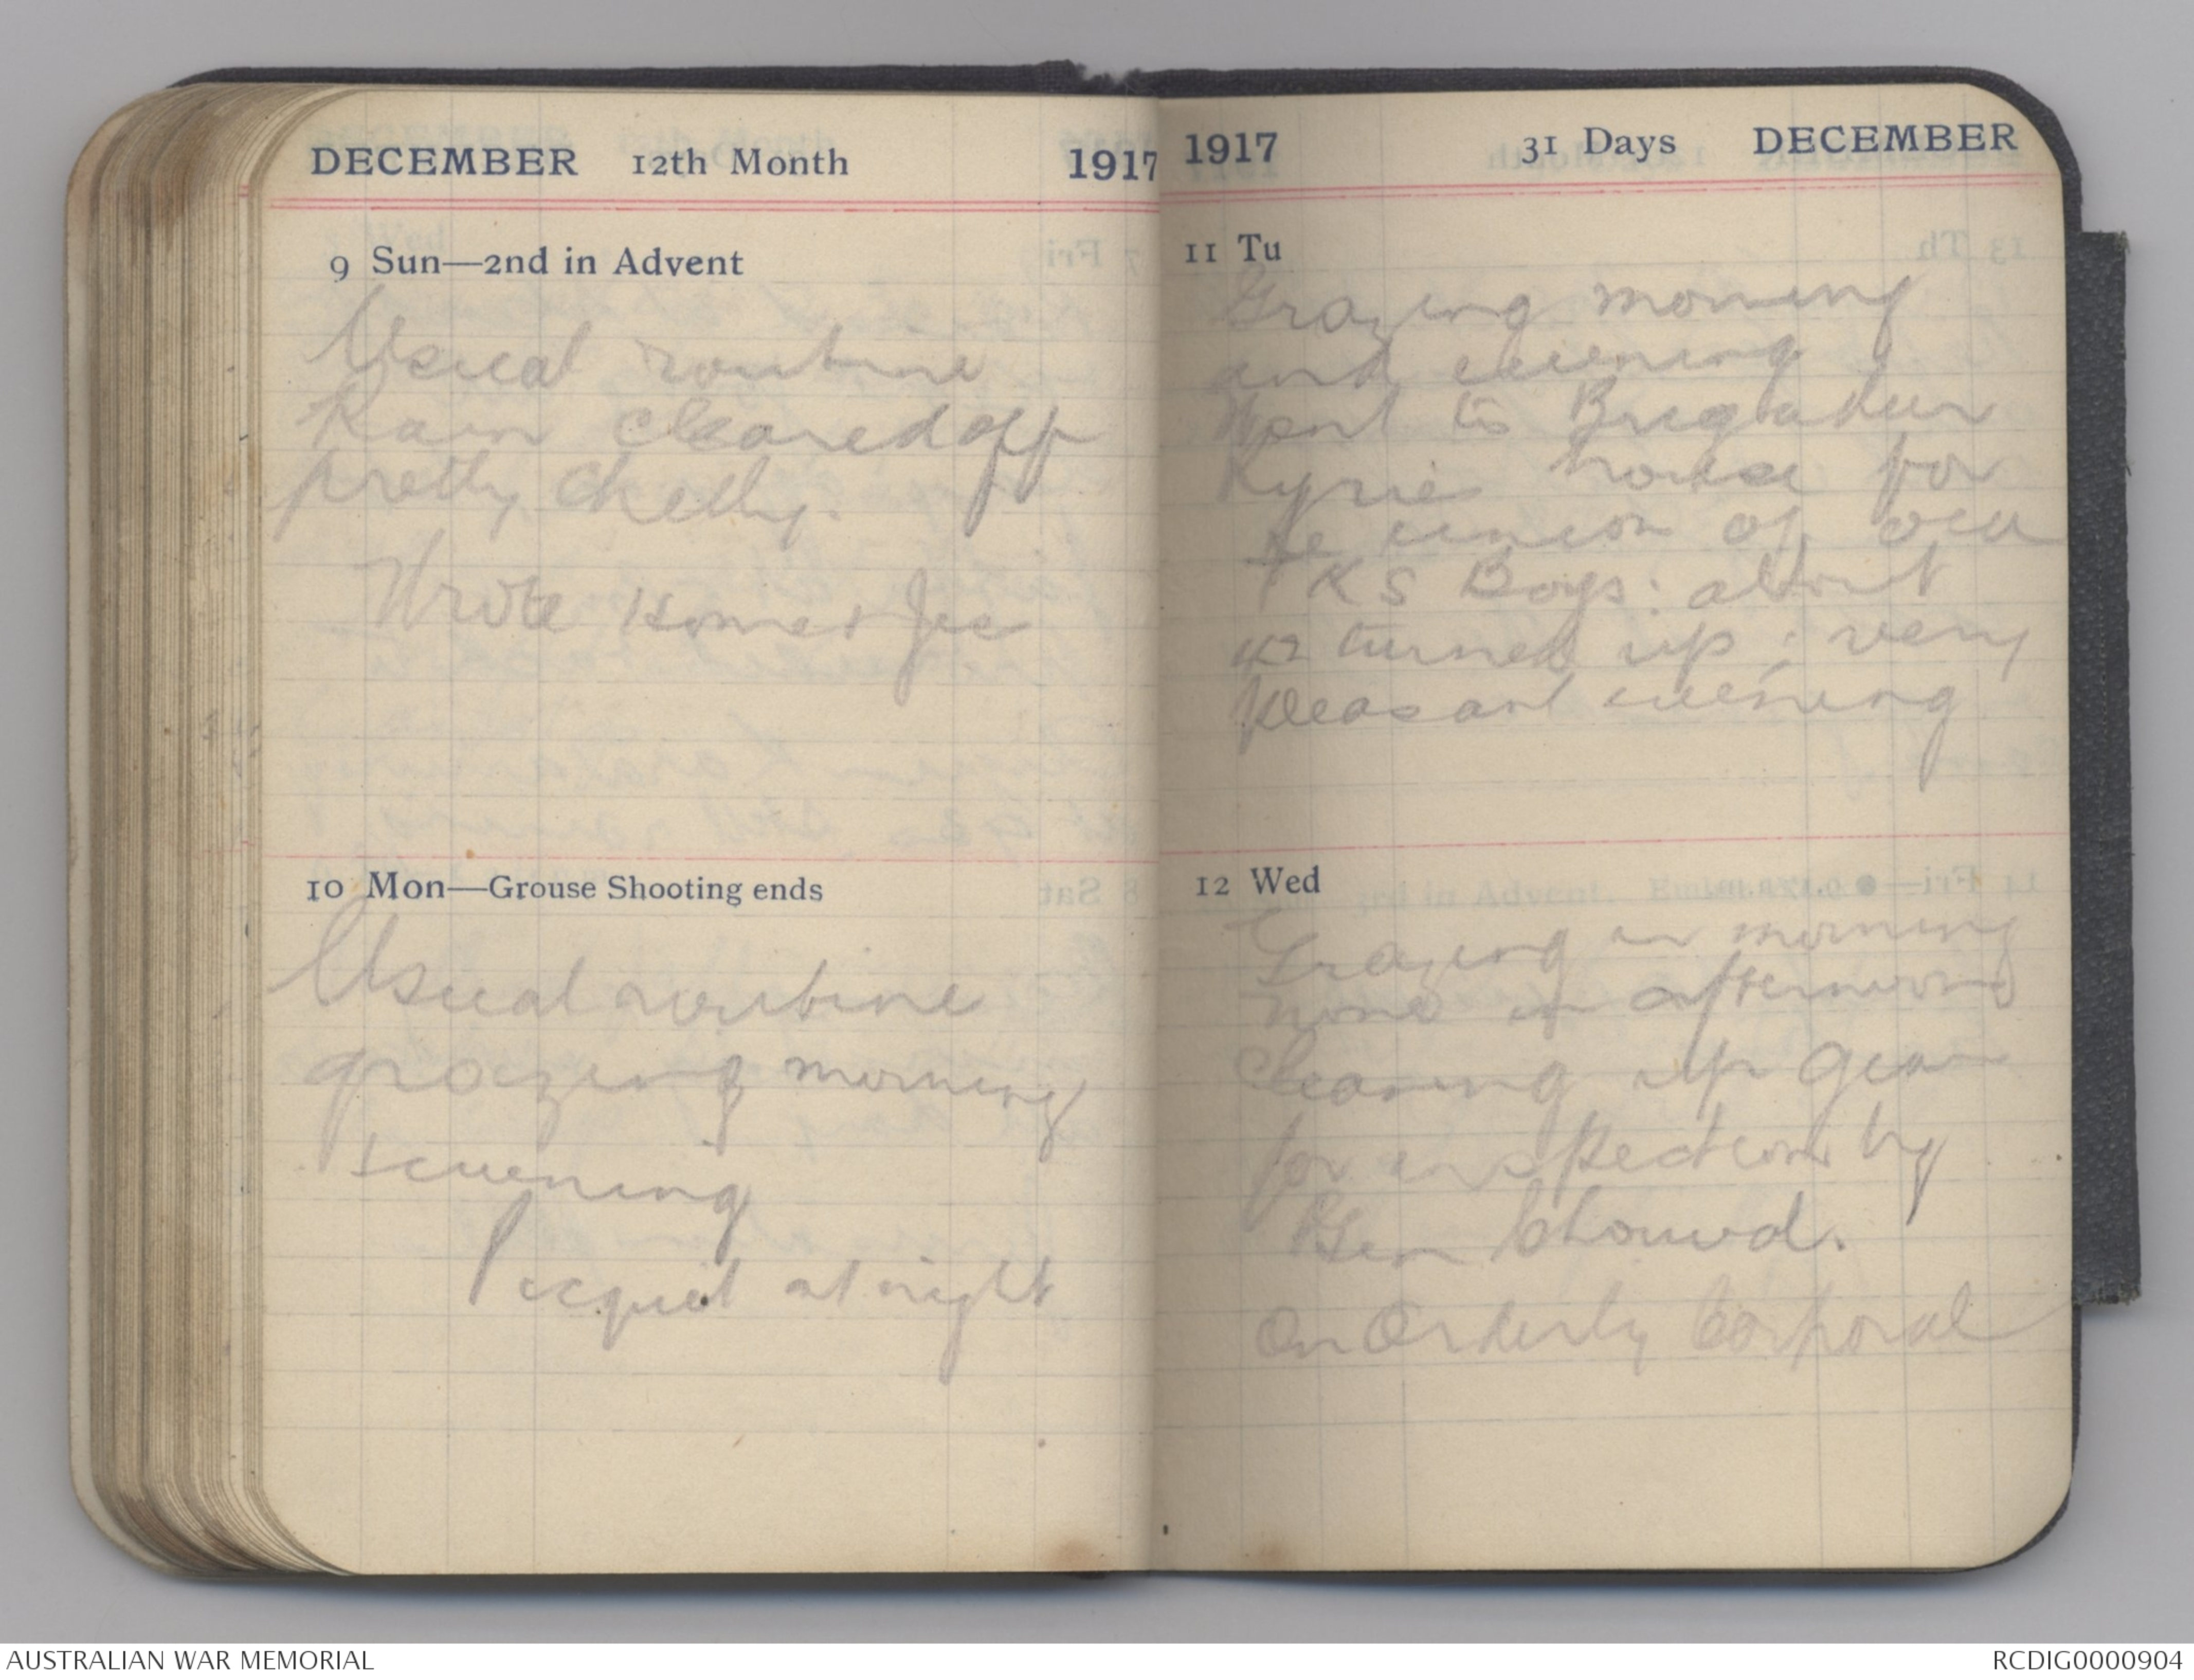 DECEMBER 12th Month 1917
9 Sun—2nd in Advent
Usual routine
Rain cleared off
pretty chelly.
Wrote Home +
10 Mon—Grouse Shooting ends
Usual routine
grazing morning
+ evening
Picquet at night
1917 31 Days DECEMBER
11 Tu
Grazing morning
and evening
Went to Brigadier
Kyrie house for
re union of old
T K S Boys: about
42 turned up; very
pleasant evening
12 Wed
Grazing in morning
none in afternoon
cleaning up gear
for inspection by
Gen Chauvel.
On Orderly Corporal
AUSTRALIAN WAR MEMORIAL
RCDIG0000904